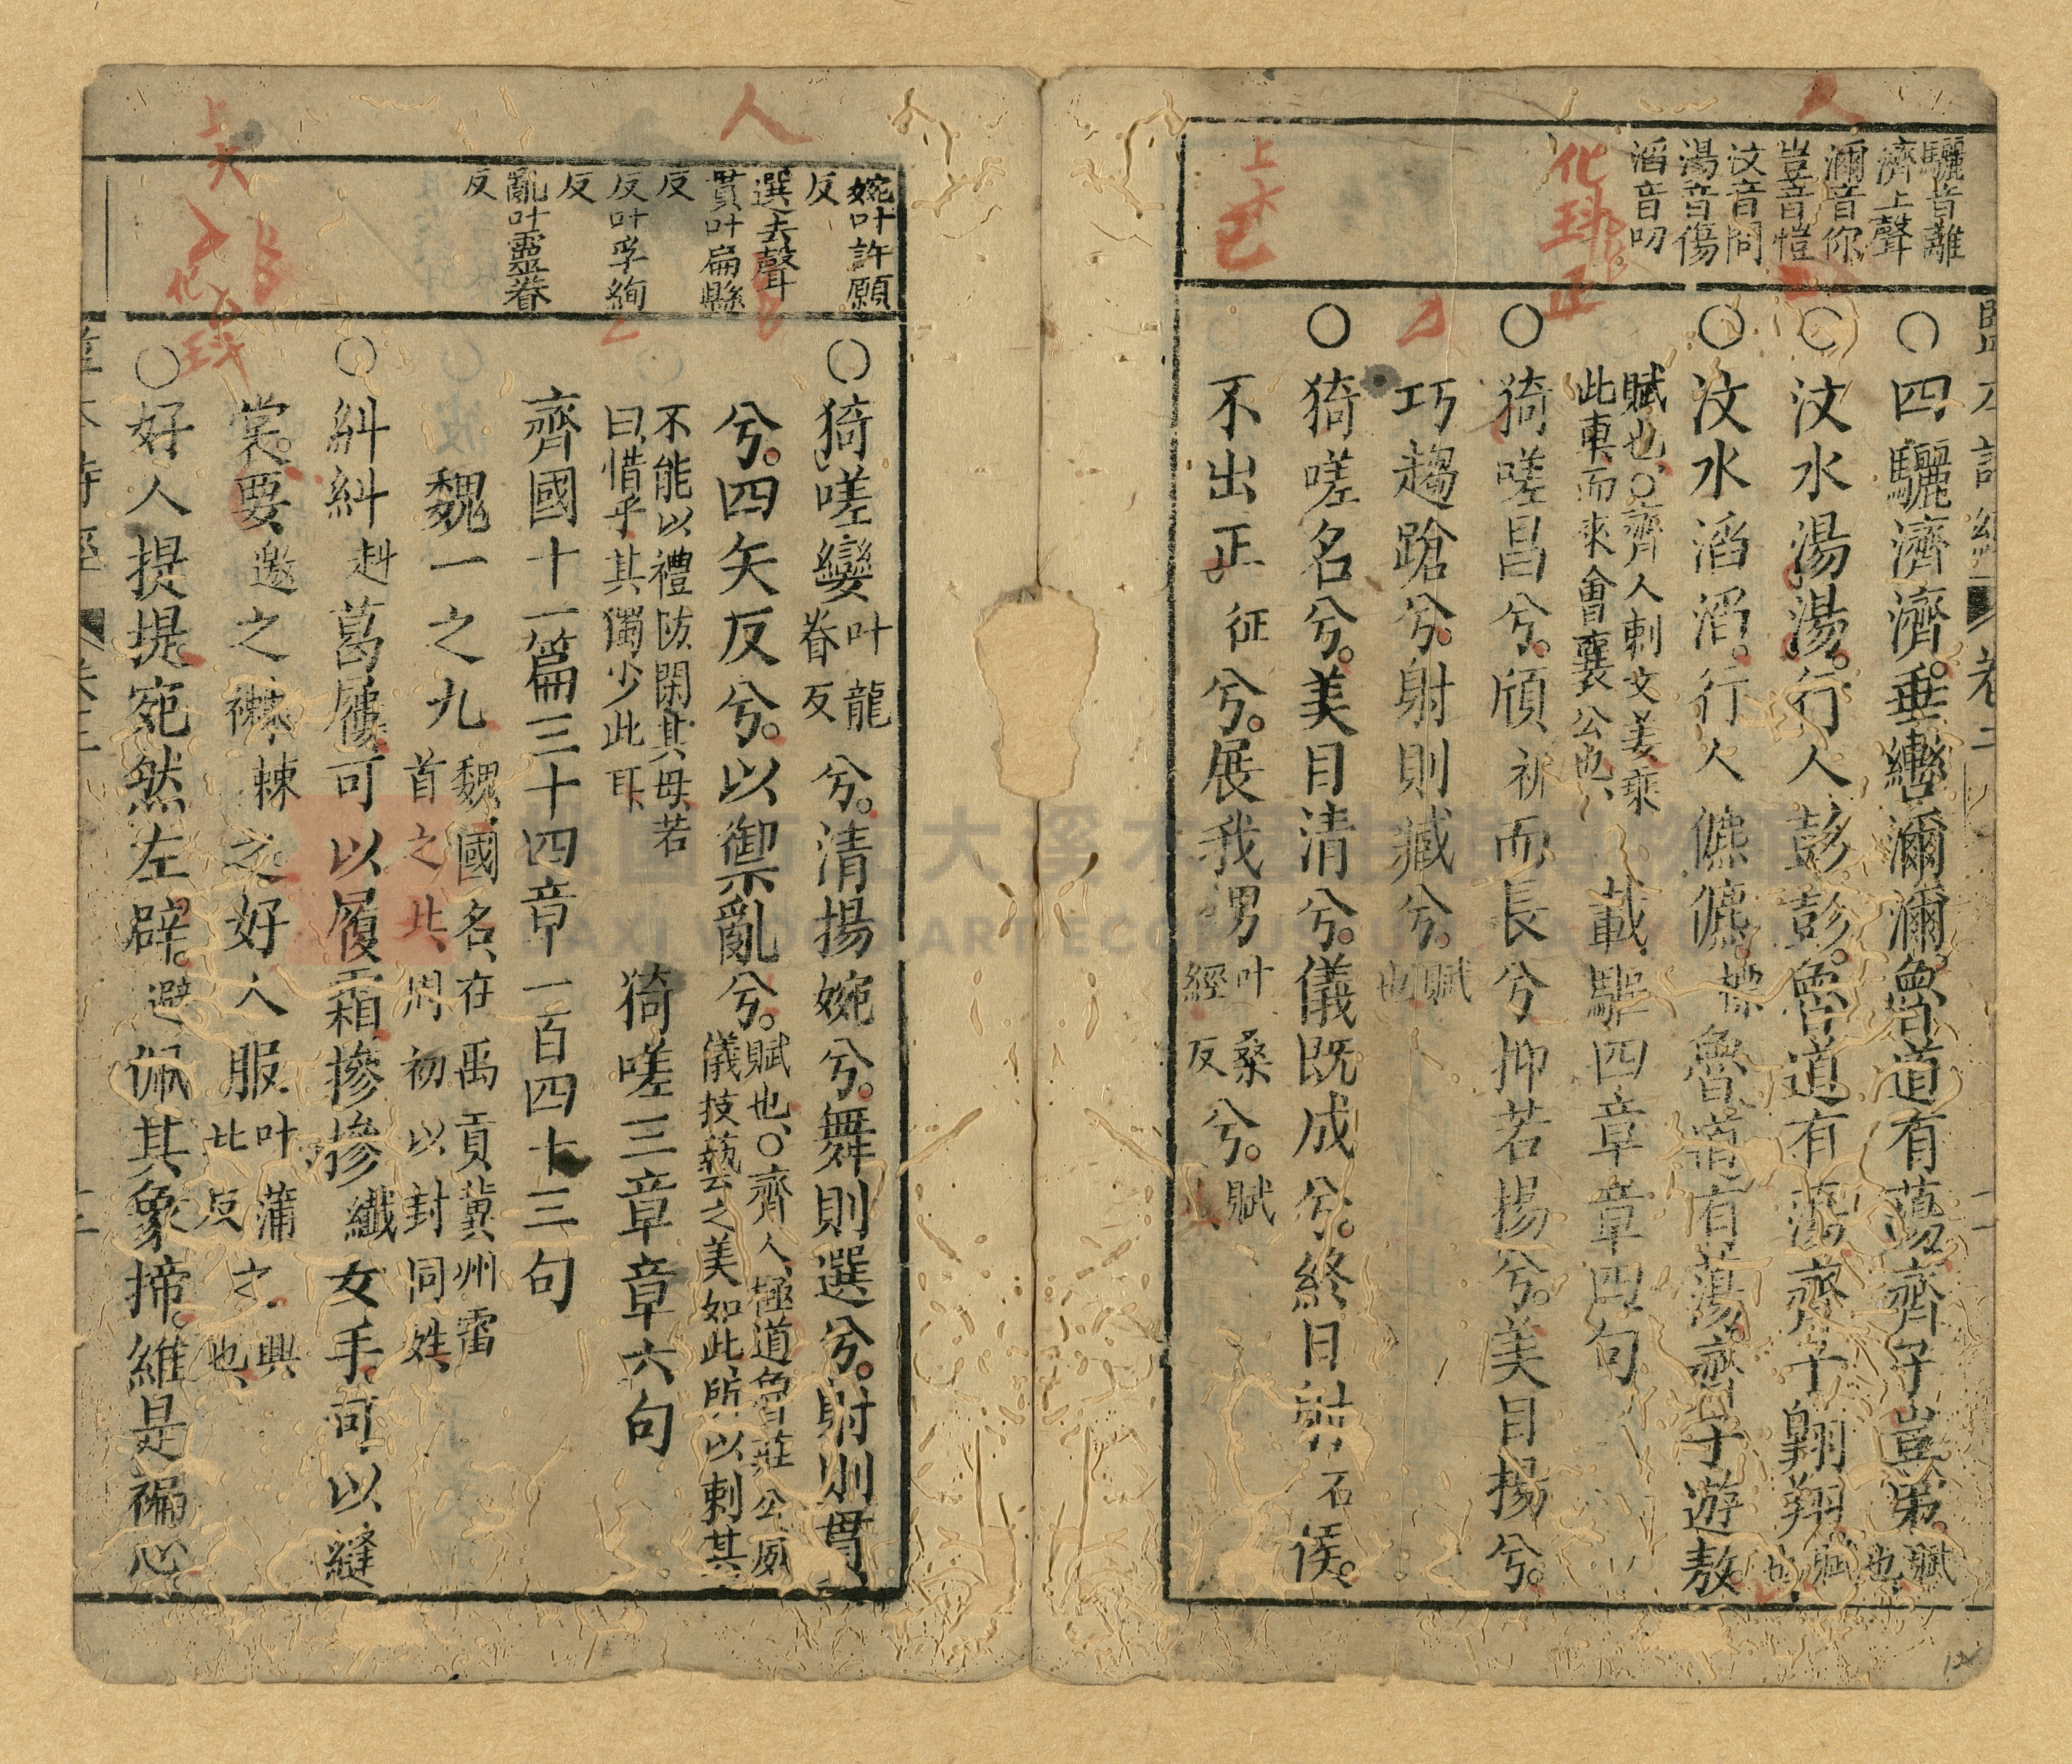 驪音離
濟上聲
濔音你
豈音愷
汶音問
湯音傷
滔音叨
○四驪濟濟。垂轡濔濔。魯道有蕩。齊子豈弟。賦也
○汶水湯湯。行人彭彭。魯道有蕩。齊子翱翔賦也
○汶水滔滔。行人儦儦。標魯道有蕩。齊子遊敖
賦也、○齊人刺文姜乘此車而來會襄公也、載驅四章章四句
○猗嗟昌兮。頎祈而長兮抑若揚兮。美目揚兮。
巧趨蹌兮。射則臧兮。賦也
○猗嗟名兮。美目清兮。儀既成兮。終日射石侯。
不出正征兮。展我甥叶桑經反兮。賦
婉叶許願反
選去聲
貫叶扁縣反
反叶孚絢反
亂叶靈眷反
○猗嗟孌叶龍眷反兮。清揚婉兮。舞則選兮。射則貫
兮。四矢反兮。以禦亂兮。賦也、○齊人極道魯莊公威儀技藝之美如此、所以刺其
不能以禮防閑其母、若曰、惜乎其獨少此耳、猗嗟三章章六句
齊國十一篇三十四章一百四十三句
魏一之九魏、國名、在禹貢冀州雷首之北、周初以封同姓、
○糾糾赳葛屨可以履霜摻摻纖女手。可以縫
裳。要邀之襋棘之好人服叶蒲北反之興也、
○好人提提。宛然左辟。避佩其象揥。維是褊心